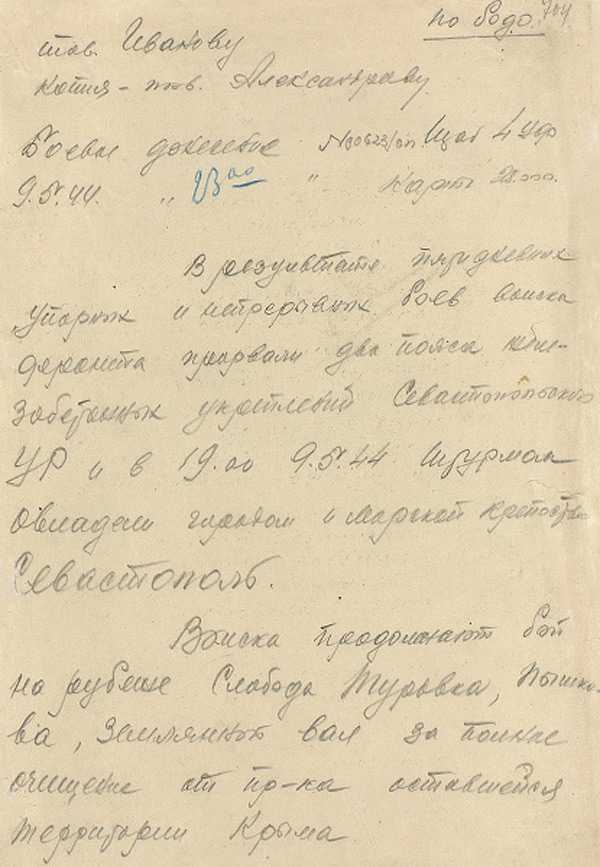 по Бодо. 704
тов. Иванову
копия – тов. Александрову
Боевое донесение №00623/оп. Штаб 4 Уф
9.5.44. " 23 00 " Карты
В результате пятидневных
упорных и непрерывных боев войска
фронта прорвали два пояса
железобетонных укреплений Севастопольского
УР и в 19.00 9.5.44 штурмом
овладели городом и морской крепостью
Севастополь.
Войска продолжают бой
на рубеже Слобода Туровка, Пышко-
ва, Земляной вал за полное
очищение от пр-ка оставшейся
территории Крыма